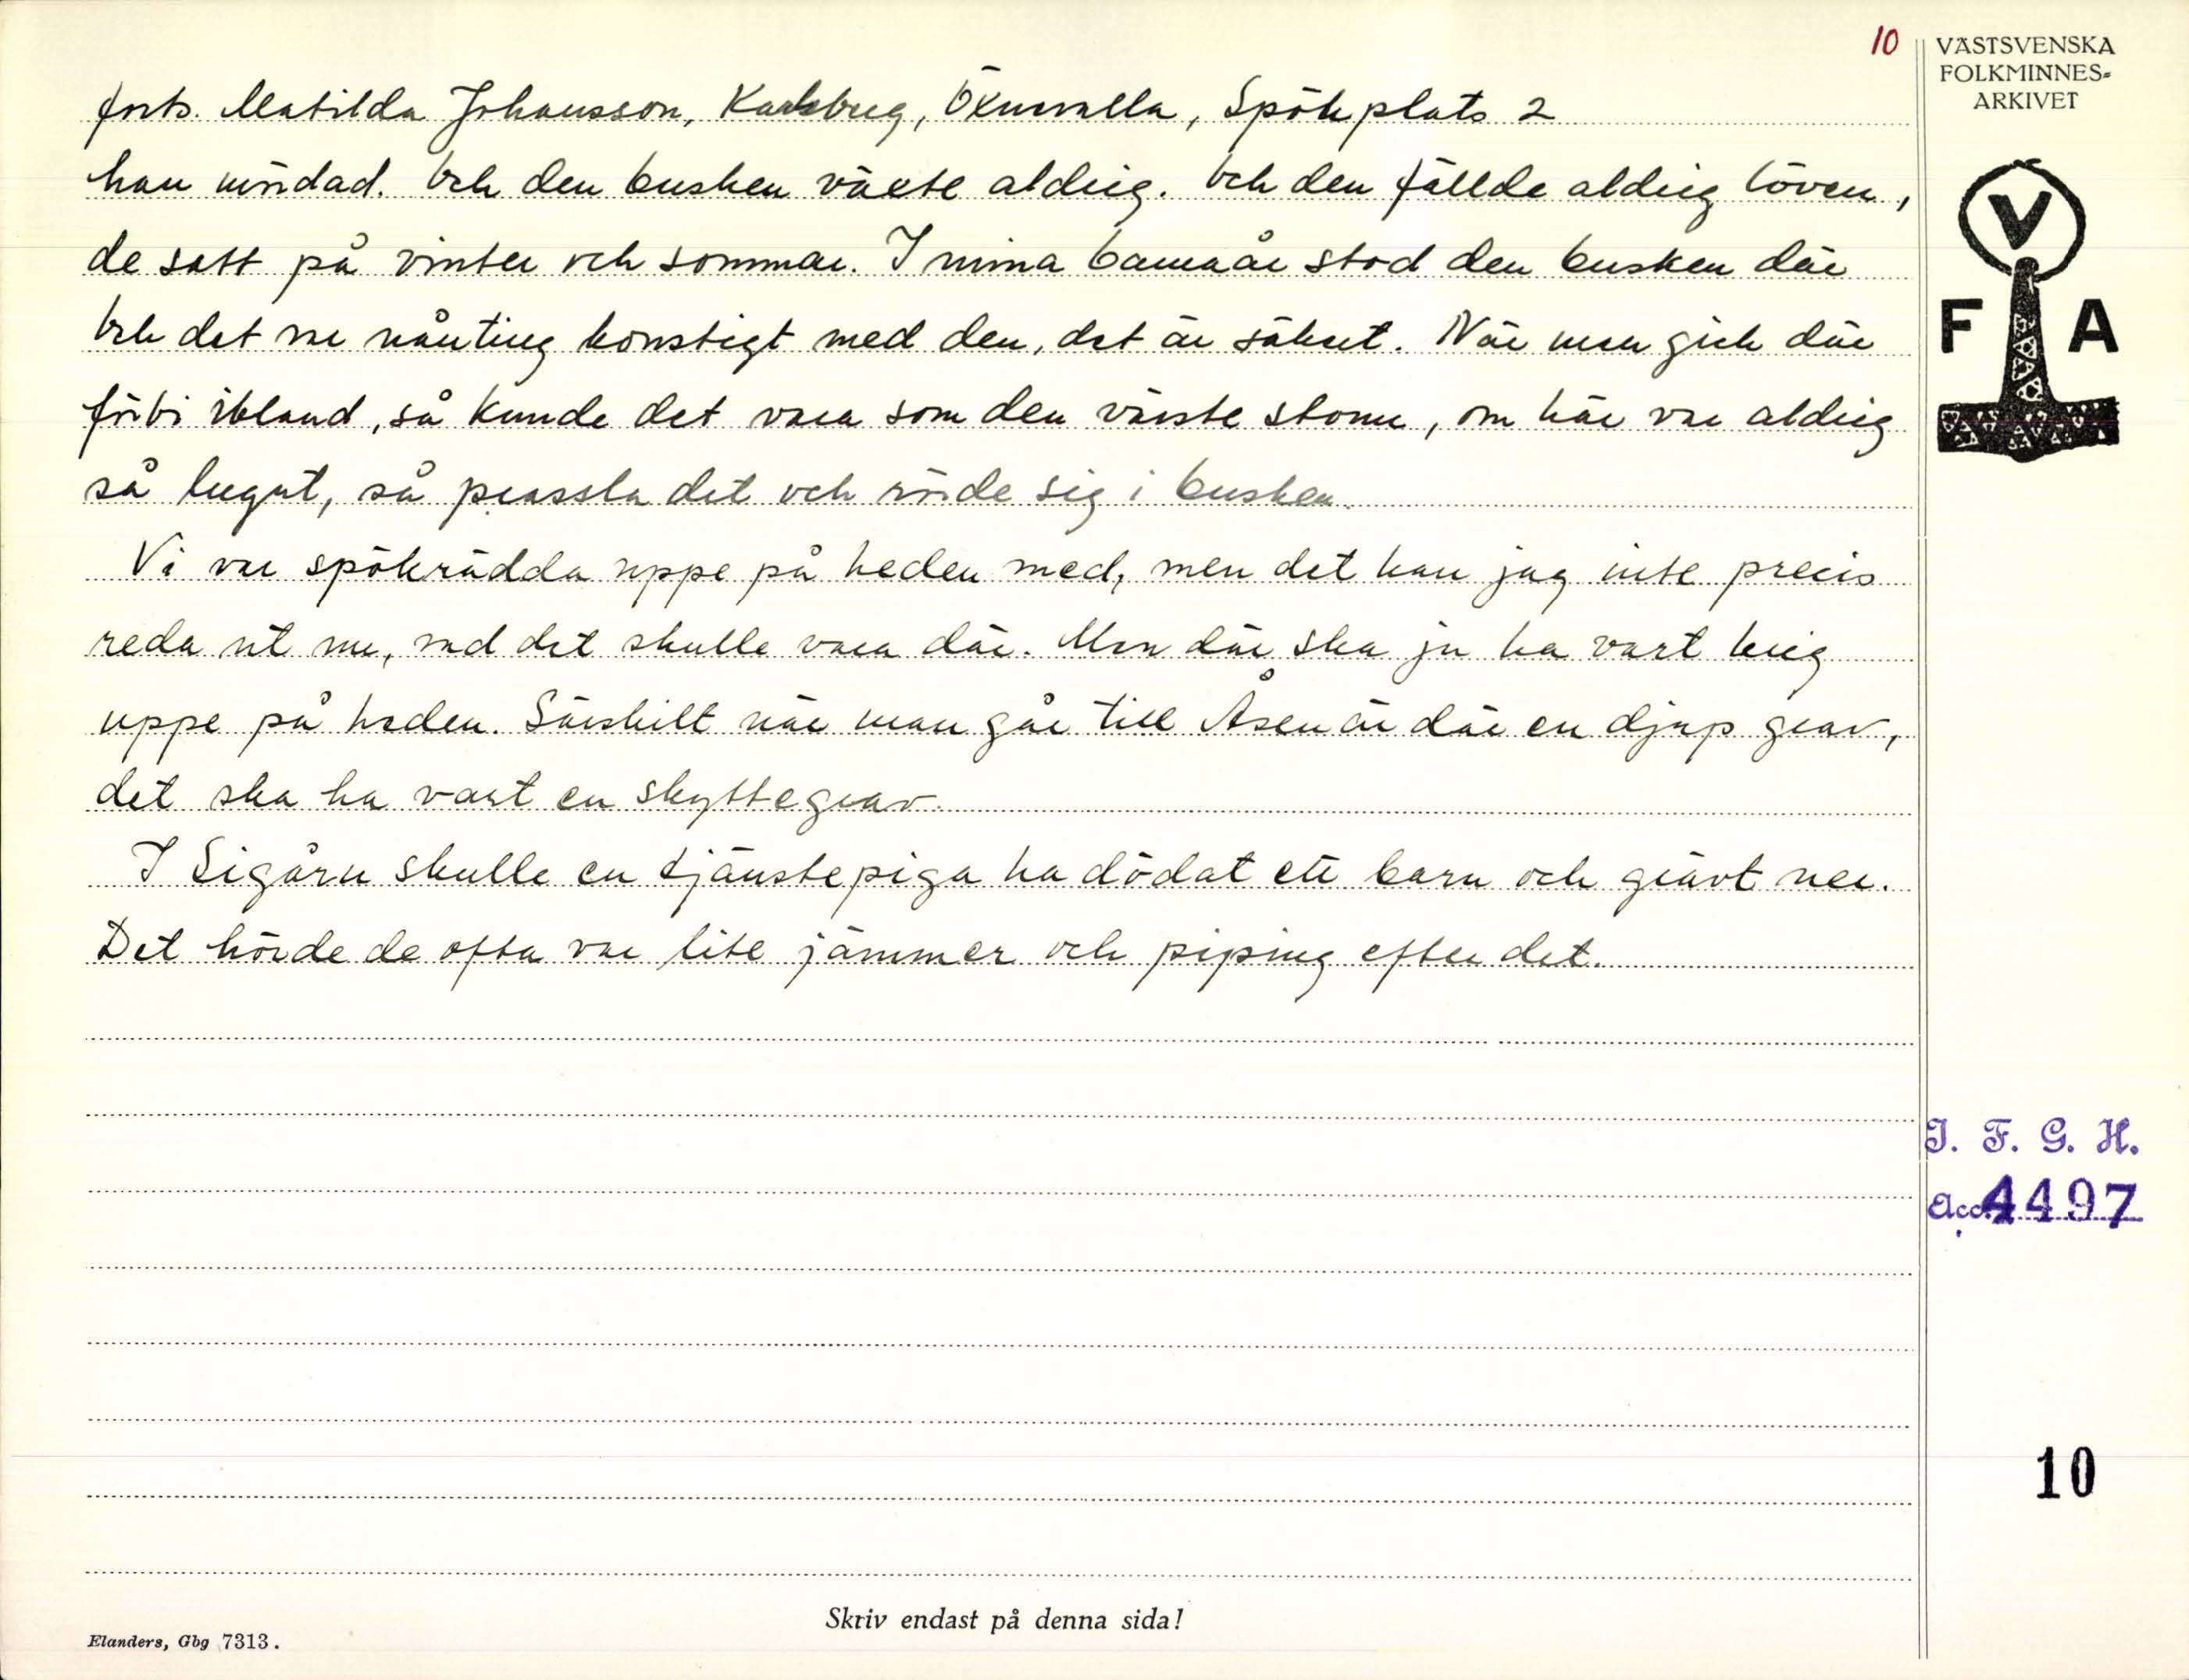 10
VÄSTSVENSKA
FOLKMINNES=
ARKIVET
forts. Matilda Johansson, Karlsberg, Öxnevalla, Spökplats 2
han mördad. Och den busken växte aldrig. Och den fällde aldrig löven,
de satt på vinter och sommar. I mina barnaår stod den busken där
Och det var nånting konstigt med den, det är säkert. När man gick där
förbi ibland, så kunde det vara som den värste storm, om här var aldrig
så lugnt, så prassla det och rörde sig i busken.
Vi var spökrädda uppe på heden med, men det kan jag inte precis
reda ut nu, vad det skulle vara där. Men där ska ju ha vart krig
uppe på heden. Särskilt när man går till Åsen är där en djup grav,
det ska ha vart en skyttegrav.
I Sigårn skulle en tjänstepiga ha dödat ett barn och grävt ner.
Det hörde de ofta var lite jämmer och piping efter det.
V
F A
I. F. G. H.
Acc. 4497
10
Skriv endast på denna sida!
Elanders, Gbg 7313.